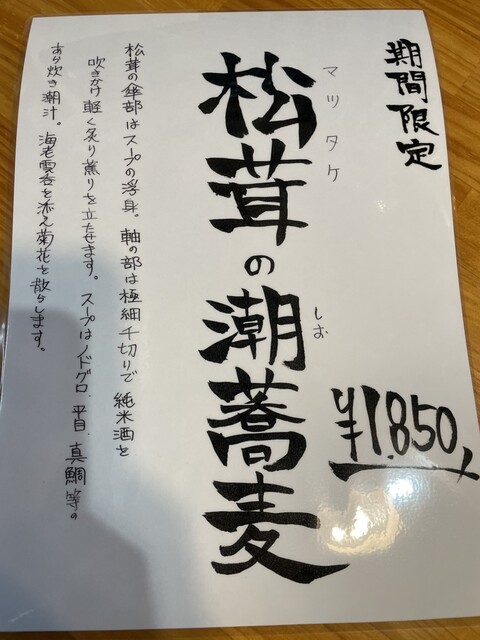 期間限定
マツタケ
松茸の潮蕎麦
しお
¥1,850
松茸の傘部はスープの浮身。軸の部は極細千切りで純米酒を
吹きかけ軽く炙り薫りを立たせます。スープはノドグロ、平目、真鯛等の
あら炊き潮汁。海老雲呑を添え菊花を散らします。